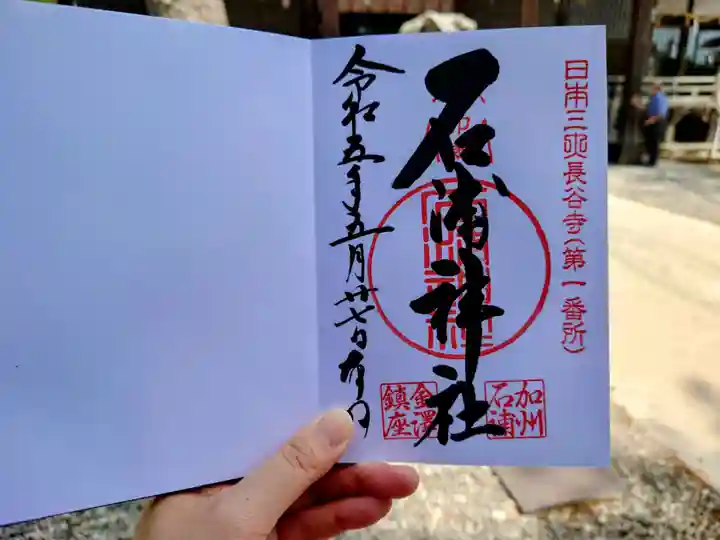 日本三大長谷寺(第一番所)
石浦神社
加州
石浦
金澤
鎮座
令和五年五月廿七日